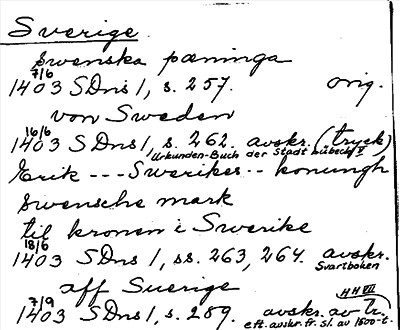 Sverige.
swenska pæninga
7/6
1403 SDns 1, s. 257. orig.
von Sweden
16/6
1403 SDns 1, s. 262. avskr. (tryck)
Urkunden-Buch der Stadt Lübeck V
Erik --- Swerikes -- konungh
swensche mark
til kronen i Swerike
18/6
1403 SDns 1, ss. 263, 264. avskr.
Svartboken
aff Suerige
HH VII
7/9
1403 SDns 1, s. 289. avskr. av tr.
eft. avskr. fr. sl. av 1500-t.